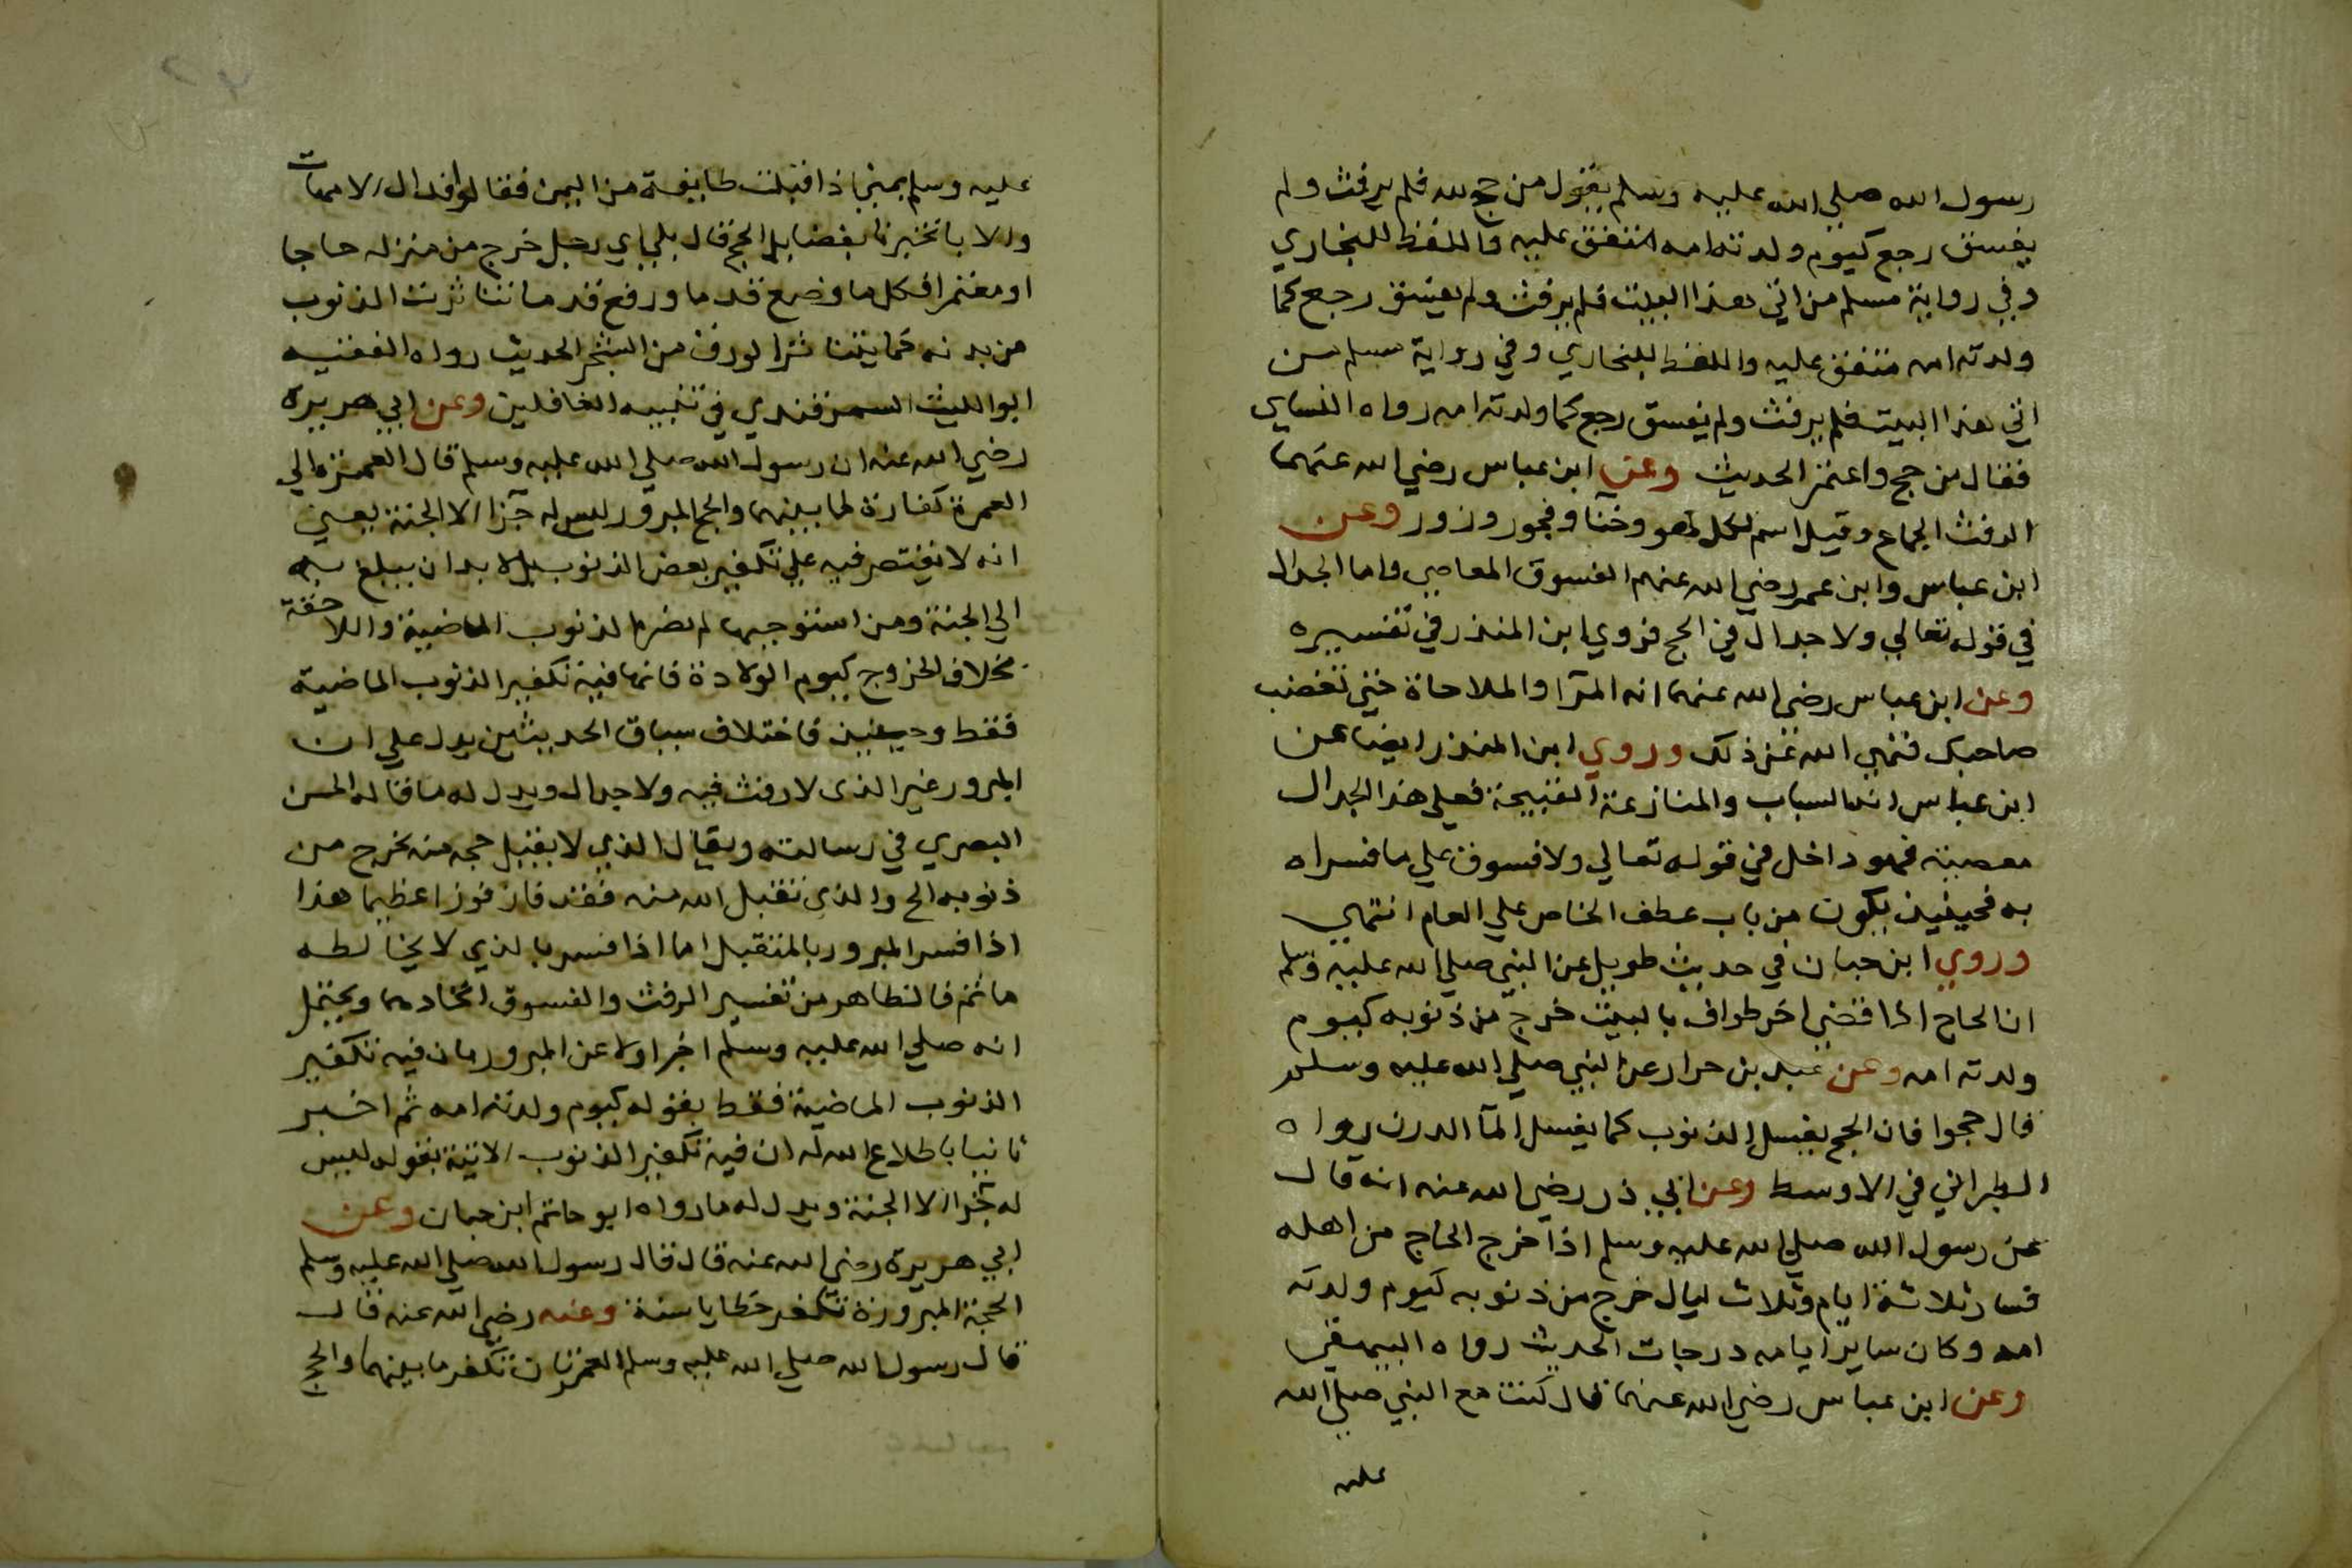 رسول الله صلي الله عليه وسلم يقول من حج لله فلم يرفث ولم
يفسق رجع كيوم ولدته امه متفق عليه واللفظ للبخاري
وفي رواية مسلم من اتي هذا البيت فلم يرفث ولم يفسق رجع كما
ولدته امه متفق عليه واللفظ للبخاري وفي رواية مسلم من
اتي هذا البيت فلم يرفث ولم يفسق رجع كما ولدته امه رواه النساي
فقال من حج واعتمر الحديث وعن ابن عباس رضي الله عنهما
الرفث الجماع وقيل اسم لكل لهو وخنا وفجور وزور وعن
ابن عباس وابن عمر رضي الله عنهم الفسوق المعاصي واما الجدال
في قوله تعالي ولا جدال في الحج فروي ابن المنذر في تفسيره
وعن ابن عباس رضي الله عنهما انه المرآ والملاحاة حتي تغضب
صاحبك فنهي الله عن ذلك وروي ابن المنذر ايضا عن
ابن عباس انه السباب والمنازعة القبيحة فعلي هذا الجدال
معصية فهو داخل في قوله تعالي ولا فسوق علي ما فسراه
به فحينيذ يكون من باب عطف الخاص علي العام انتهي
وروي ابن حبان في حديث طويل عن النبي صلي الله عليه وسلم
ان الحاج اذا قضي اخر طواف بالبيت خرج من ذنوبه كيوم
ولدته امه وعن عبد بن حراد عن النبي صلي الله عليه وسلم
قال حجوا فان الحج يغسل الذنوب كما يغسل المآ الدرن رواه
الطبراني في الاوسط وعن ابي ذر رضي الله عنه انه قال
عن رسول الله صلي الله عليه وسلم اذا خرج الحاج من اهله
فسار ثلاثة ايام وثلاث ليال خرج من ذنوبه كيوم ولدته
امه وكان ساير ايامه درجات الحديث رواه البيهقي
وعن ابن عباس رضي الله عنهما قال كنت مع النبي صلي الله
عليه
عليه وسلم بمني اذ اقبلت طايفة من اليمن فقالوا فداك الامهات
والابا تخبرنا بفضايل الحج قال بلي اي رجل خرج من منزله حاجا
او معتمرا فكل ما وضع قدما ورفع قدما تناثرت الذنوب
من بدنه كما يتناثر الورق من الشجر الحديث رواه الفقيه
ابو الليث السمرقندي في تنبيه الغافلين وعن ابي هريرة
رضي الله عنه ان رسول الله صلي الله عليه وسلم قال العمرة الي
العمرة كفارة لما بينهما والحج المبرور ليس له جزا الا الجنة يعني
انه لا يقتصر فيه علي تكفير بعض الذنوب بل لا بد ان يبلغ به
الي الجنة ومن استوجبها لم تضره الذنوب الماضية واللاحقة
بخلاف الخروج كيوم الولادة فانما فيه تكفير الذنوب الماضية
فقط وحينيذ فاختلاف سياق الحديثين يدل علي ان
المبرور غير الذي لا رفث فيه ولا جدال ويدل له ما قاله الحسن
البصري في رسالته ويقال الذي لا يقبل حجه منه يخرج من
ذنوبه الح والذي تقبل الله منه فقد فاز فوزا عظيما هذا
اذا فسر المبرور بالمتقبل اما اذا فسر بالذي لا يخالطه
ماثم فالظاهر من تفسير الرفث والفسوق اتحادهما ويحتمل
انه صلي الله عليه وسلم اخبر اولا عن المبرور بان فيه تكفير
الذنوب الماضية فقط بقوله كيوم ولدته امه ثم اخبر
ثانيا باطلاع الله له ان فيه تكفير الذنوب الاتية بقوله ليس
له جزا الا الجنة ويدل له ما رواه ابو حاتم ابن حبان وعن
ابي هريرة رضي الله عنه قال قال رسول الله صلي الله عليه وسلم
الحجة المبرورة تكفر خطايا سنة وعنه رضي الله عنه قال
قال رسول الله صلي الله عليه وسلم العمرتان تكفر ما بينهما والحج